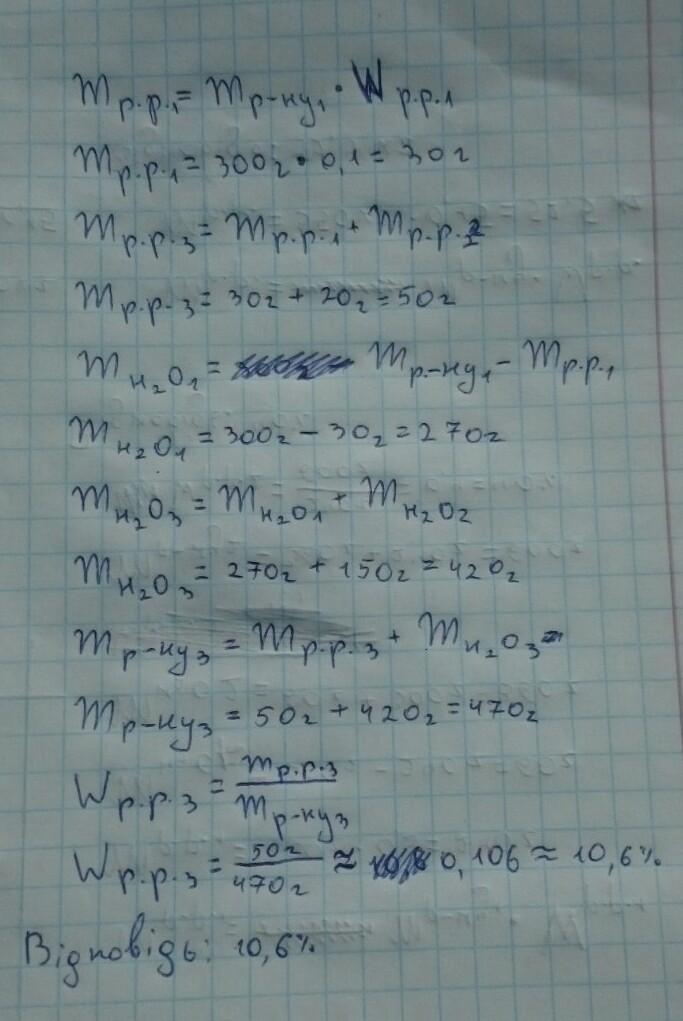 m р.р.1 = m р-ну1 · W р.р.1
m р.р.1 = 300г · 0,1 = 30г
m р.р.3 = m р.р.1 + m р.р.2
m р.р.3 = 30г + 20г = 50г
m H2O1 = m р-ну1 - m р.р.1
m H2O1 = 300г - 30г = 270г
m H2O3 = m H2O1 + m H2O2
m H2O3 = 270г + 150г = 420г
m р-ну3 = m р.р.3 + m H2O3
m р-ну3 = 50г + 420г = 470г
W р.р.3 = m р.р.3 / m р-ну3
W р.р.3 = 50г / 470г ≈ 0,106 ≈ 10,6%
Відповідь: 10,6%